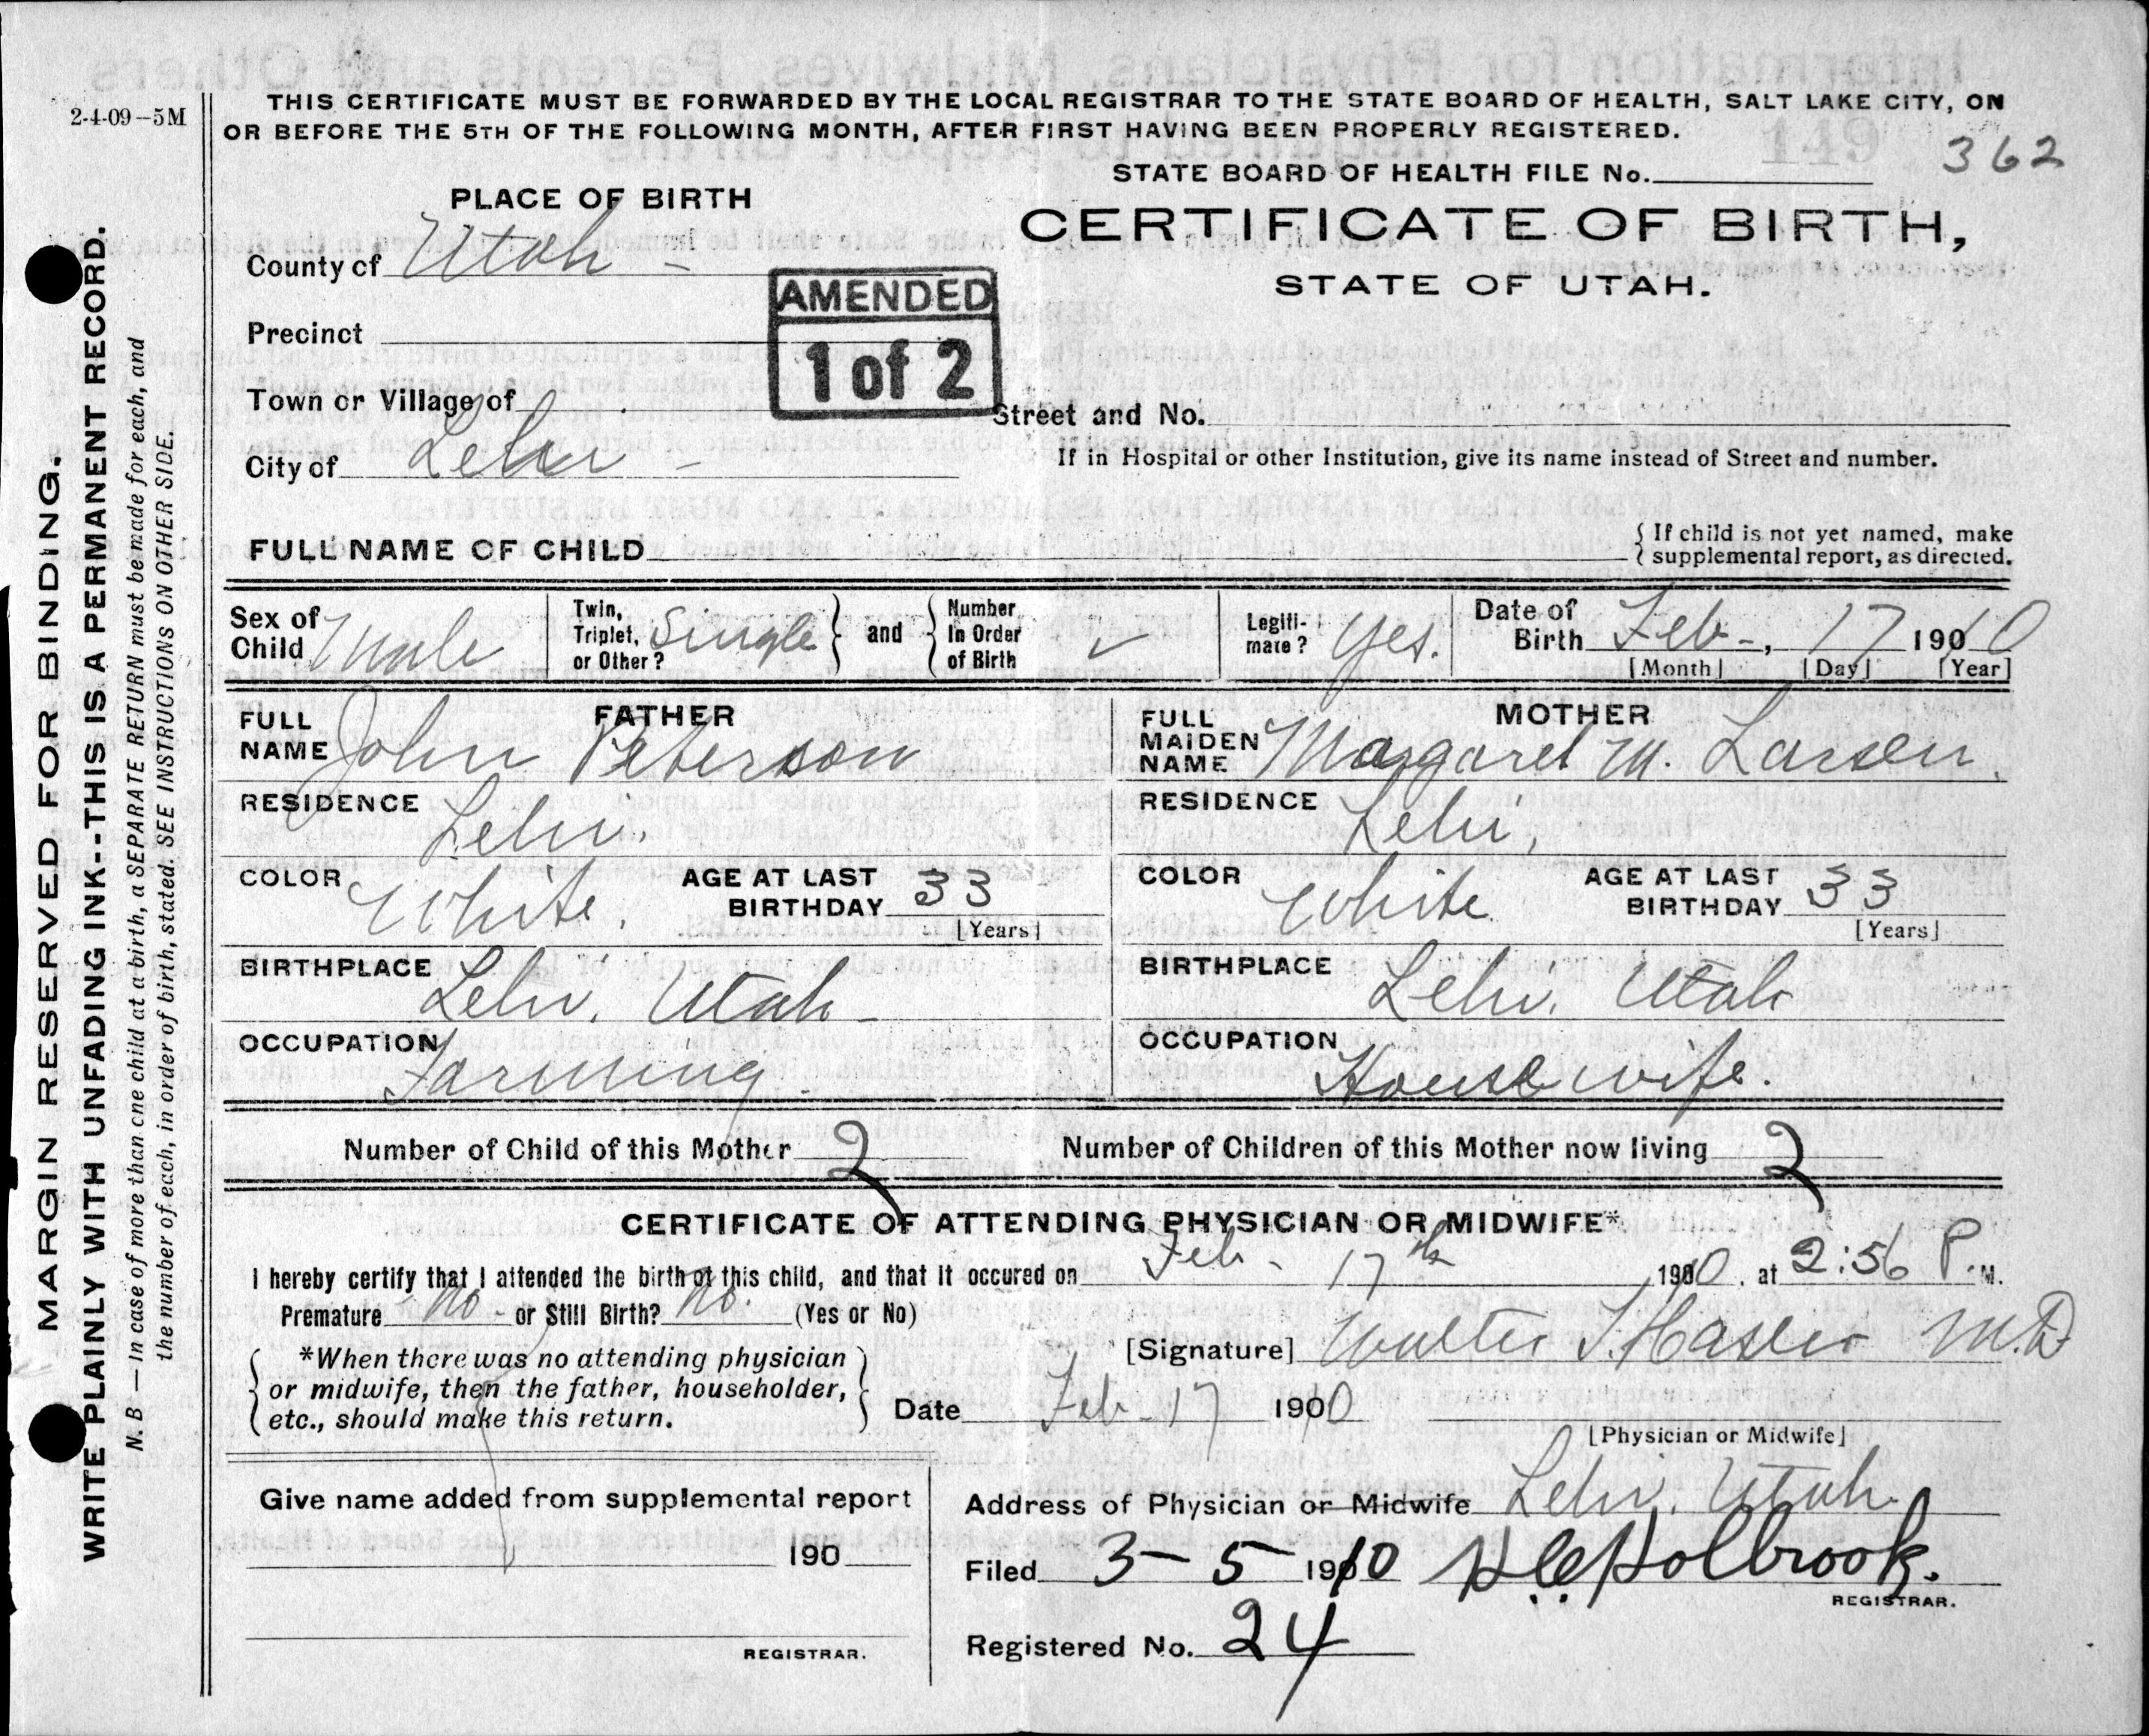 2-4-09–5M
THIS CERTIFICATE MUST BE FORWARDED BY THE LOCAL REGISTRAR TO THE STATE BOARD OF HEALTH, SALT LAKE CITY, ON
OR BEFORE THE 5TH OF THE FOLLOWING MONTH, AFTER FIRST HAVING BEEN PROPERLY REGISTERED.
STATE BOARD OF HEALTH FILE No. 149 362
CERTIFICATE OF BIRTH,
STATE OF UTAH.
PLACE OF BIRTH
County of Utah –
Precinct
AMENDED
1 of 2
Town or Village of
City of Lehi –
Street and No.
If in Hospital or other Institution, give its name instead of Street and number.
FULL NAME OF CHILD
{ If child is not yet named, make
supplemental report, as directed.
Sex of Child Male
Twin, Triplet, or Other? Single } and { Number In Order of Birth ✓
Legiti-mate? Yes.
Date of Birth Feb-, 17 1910
[Month] [Day] [Year]
FATHER
FULL NAME John Peterson
RESIDENCE Lehi.
COLOR White. AGE AT LAST BIRTHDAY 33
[Years]
BIRTHPLACE Lehi, Utah –
OCCUPATION Farming
MOTHER
FULL MAIDEN NAME Margaret M. Larsen.
RESIDENCE Lehi,
COLOR White AGE AT LAST BIRTHDAY 33
[Years]
BIRTHPLACE Lehi, Utah
OCCUPATION Housewife.
Number of Child of this Mother 2 Number of Children of this Mother now living 2
CERTIFICATE OF ATTENDING PHYSICIAN OR MIDWIFE*
I hereby certify that I attended the birth of this child, and that it occured on Feb - 17th 1910, at 2:56 P. M.
Premature No - or Still Birth? No. (Yes or No)
*When there was no attending physician
or midwife, then the father, householder,
etc., should make this return.
[Signature] Walter T. Hasler M.D
Date Feb-17 1910
[Physician or Midwife]
Give name added from supplemental report
190
REGISTRAR.
Address of Physician or Midwife Lehi, Utah.
Filed 3-5 1910 H.C. Holbrook.
REGISTRAR.
Registered No. 24
MARGIN RESERVED FOR BINDING.
WRITE PLAINLY WITH UNFADING INK--THIS IS A PERMANENT RECORD.
N. B — In case of more than one child at a birth, a SEPARATE RETURN must be made for each, and
the number of each, in order of birth, stated. SEE INSTRUCTIONS ON OTHER SIDE.